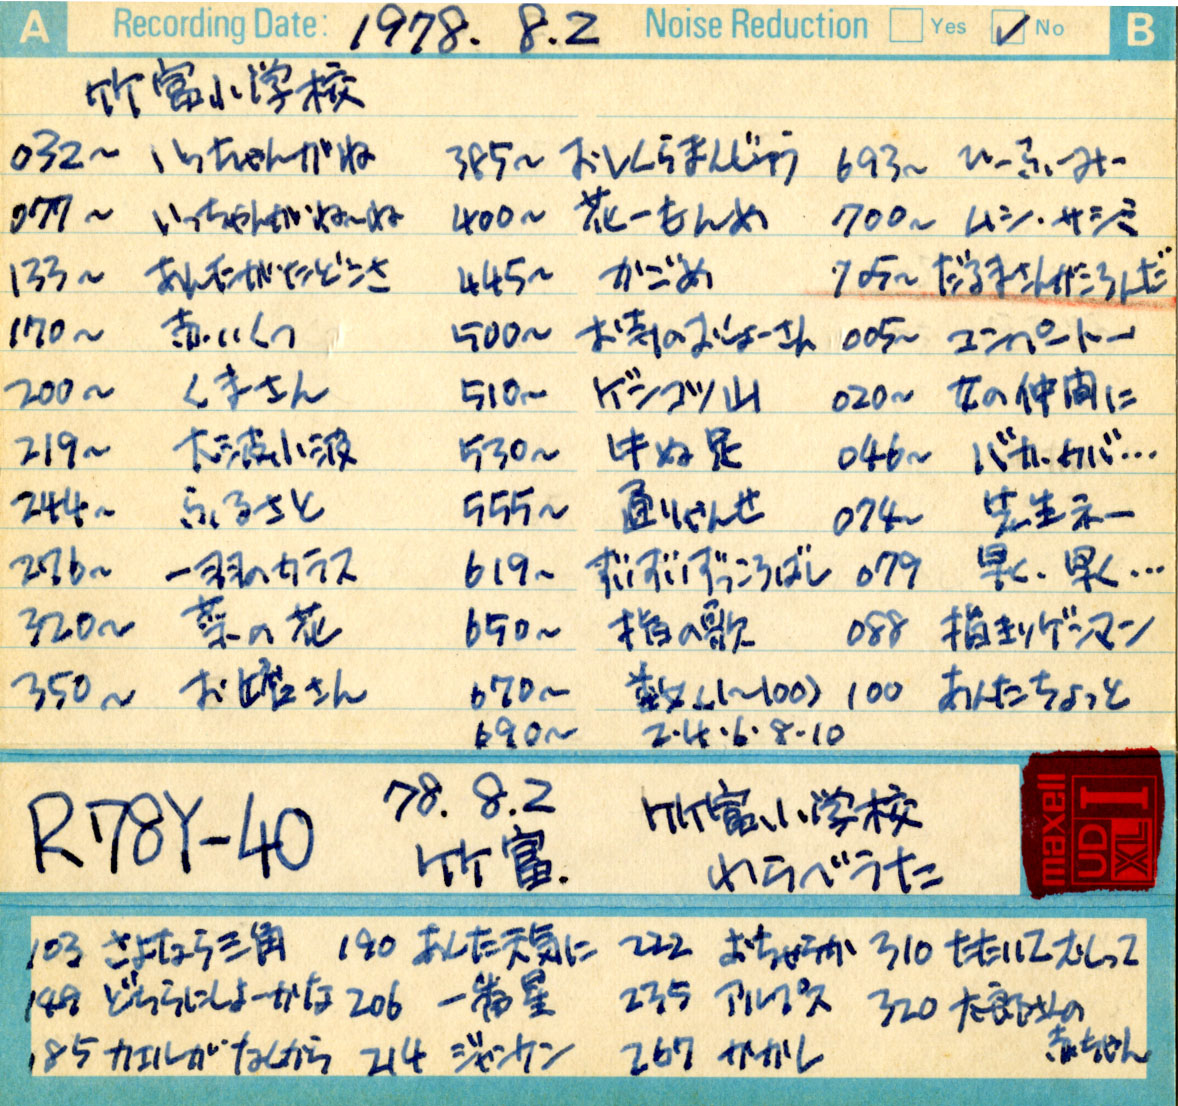 A Recording Date: 1978. 8.2 Noise Reduction Yes ✓ No B
竹富小学校
032~ いっちゃんがね 385~ おしくらまんじゅう 693~ ひーふーみー
077~ いっちゃんがね~ね 400~ 花一もんめ 700~ ムシ・サシミ
133~ あんたがたどこさ 445~ かごめ 705~ だるまさんがころんだ
170~ 赤いくつ 500~ お寺のおしょーさん 005~ コンペートー
200~ くまさん 510~ ゲンコツ山 020~ 女の仲間に
219~ 大波小波 530~ いぬ 046~ バカ・カバ…
244~ ふるさと 555~ 通りゃんせ 074~ 先生ネー
276~ 一羽のカラス 619~ ずいずいずっころばし 079 早く・早く…
320~ 菜の花 650~ 指の歌 088 指きりゲンマン
350~ お嬢さん 670~ 数(1~100) 100 あんたちょっと
690~ 2・4・6・8・10
R78Y-40 78. 8.2 竹富. 竹富小学校 わらべうた
maxell UD XL I
103 さよなら三角 190 あした天気に 222 おちゃらか 310 たたいてむしって
149 どちらにしよーかな 206 一番星 235 アルプス 320 太郎さんの赤ちゃん
185 カエルがなくから 214 ジャンケン 267 かかし